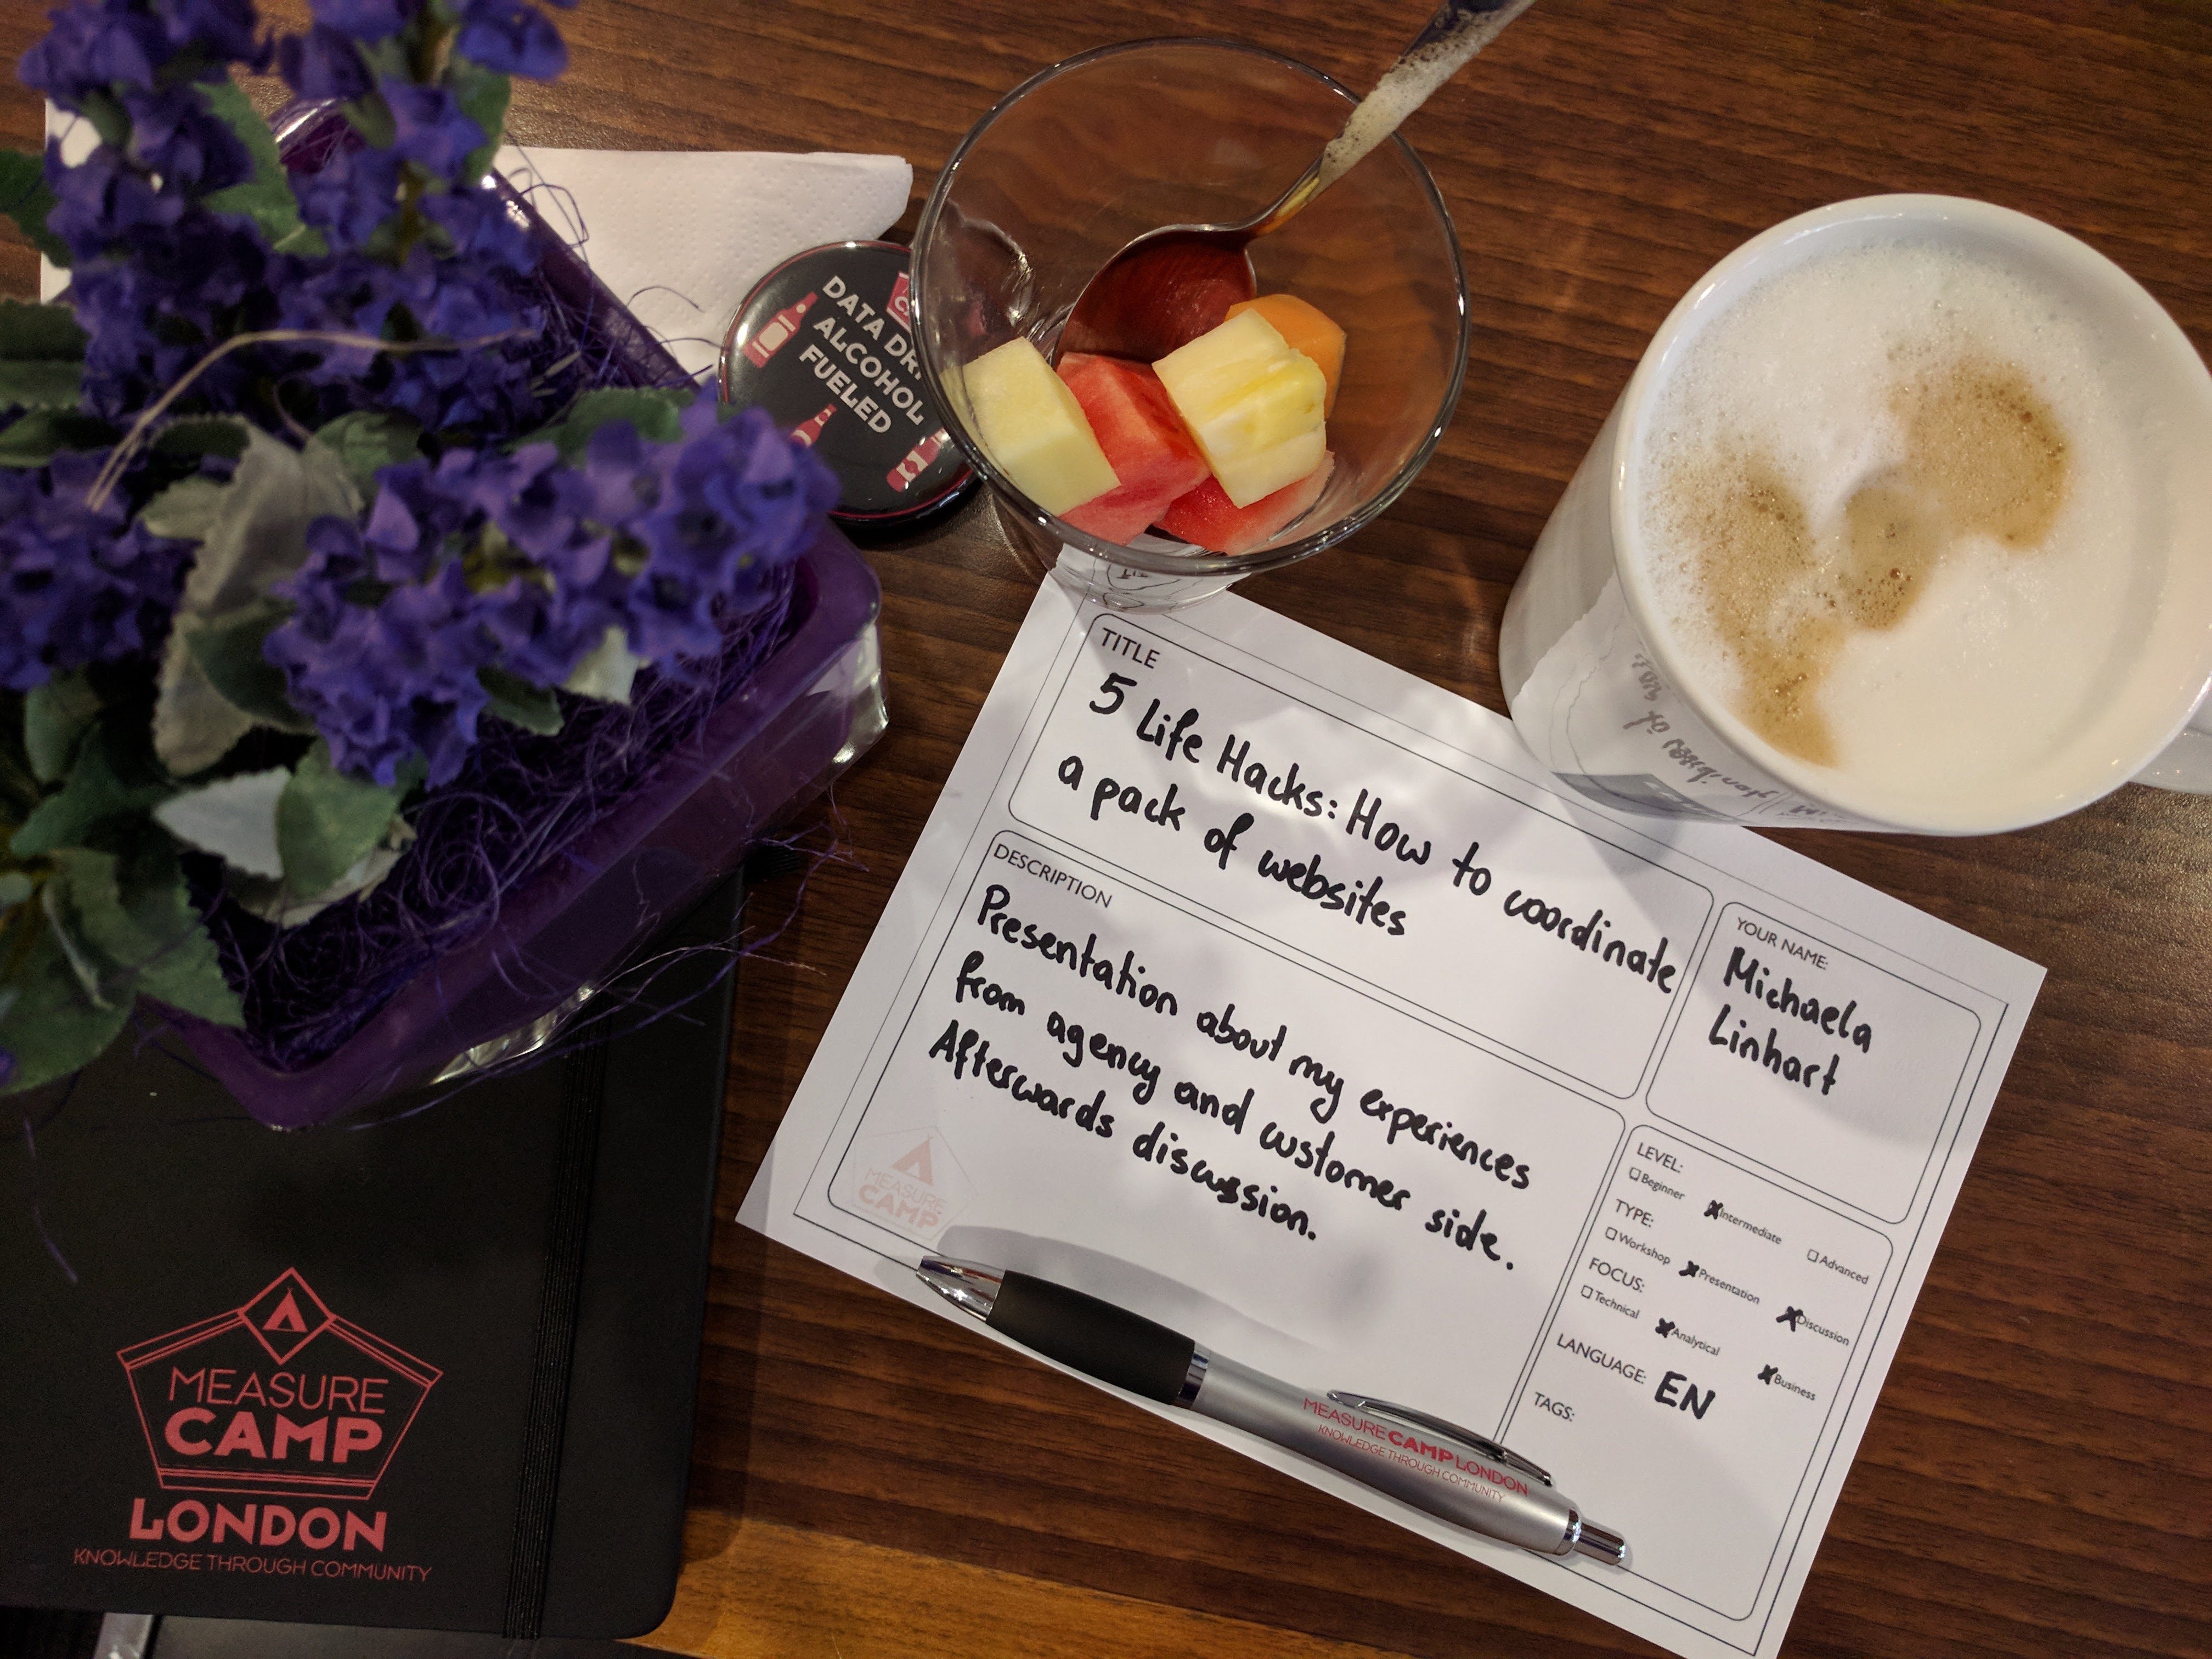 DATA DRI
ALCOHOL
FUELED
TITLE
5 Life Hacks: How to coordinate
a pack of websites
YOUR NAME:
Michaela
Linhart
DESCRIPTION
Presentation about my experiences
from agency and customer side.
Afterwards discussion.
MEASURE
CAMP
LEVEL:
Beginner Intermediate Advanced
TYPE:
Workshop Presentation Discussion
FOCUS:
Technical Analytical Business
LANGUAGE: EN
TAGS:
MEASURECAMP LONDON
KNOWLEDGE THROUGH COMMUNITY
MEASURE
CAMP
LONDON
KNOWLEDGE THROUGH COMMUNITY